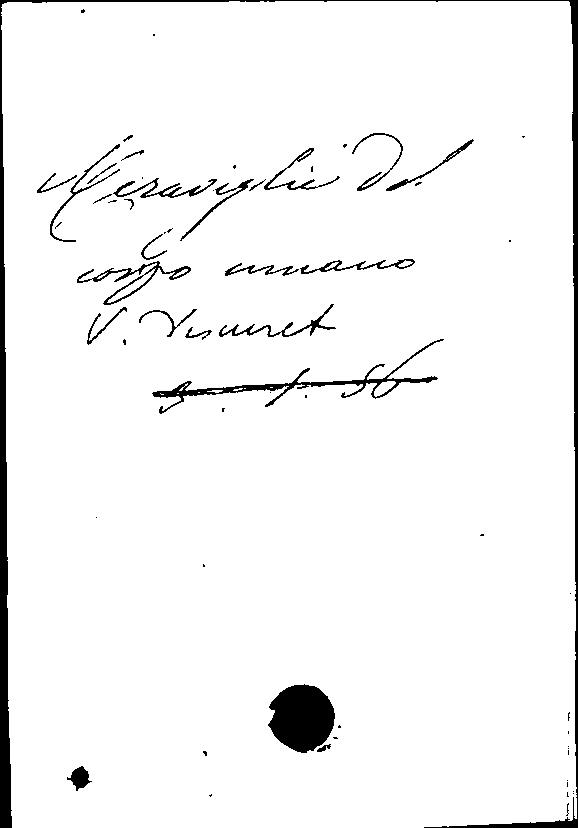 Meraviglie del
corpo umano
V.
3. 1. 56